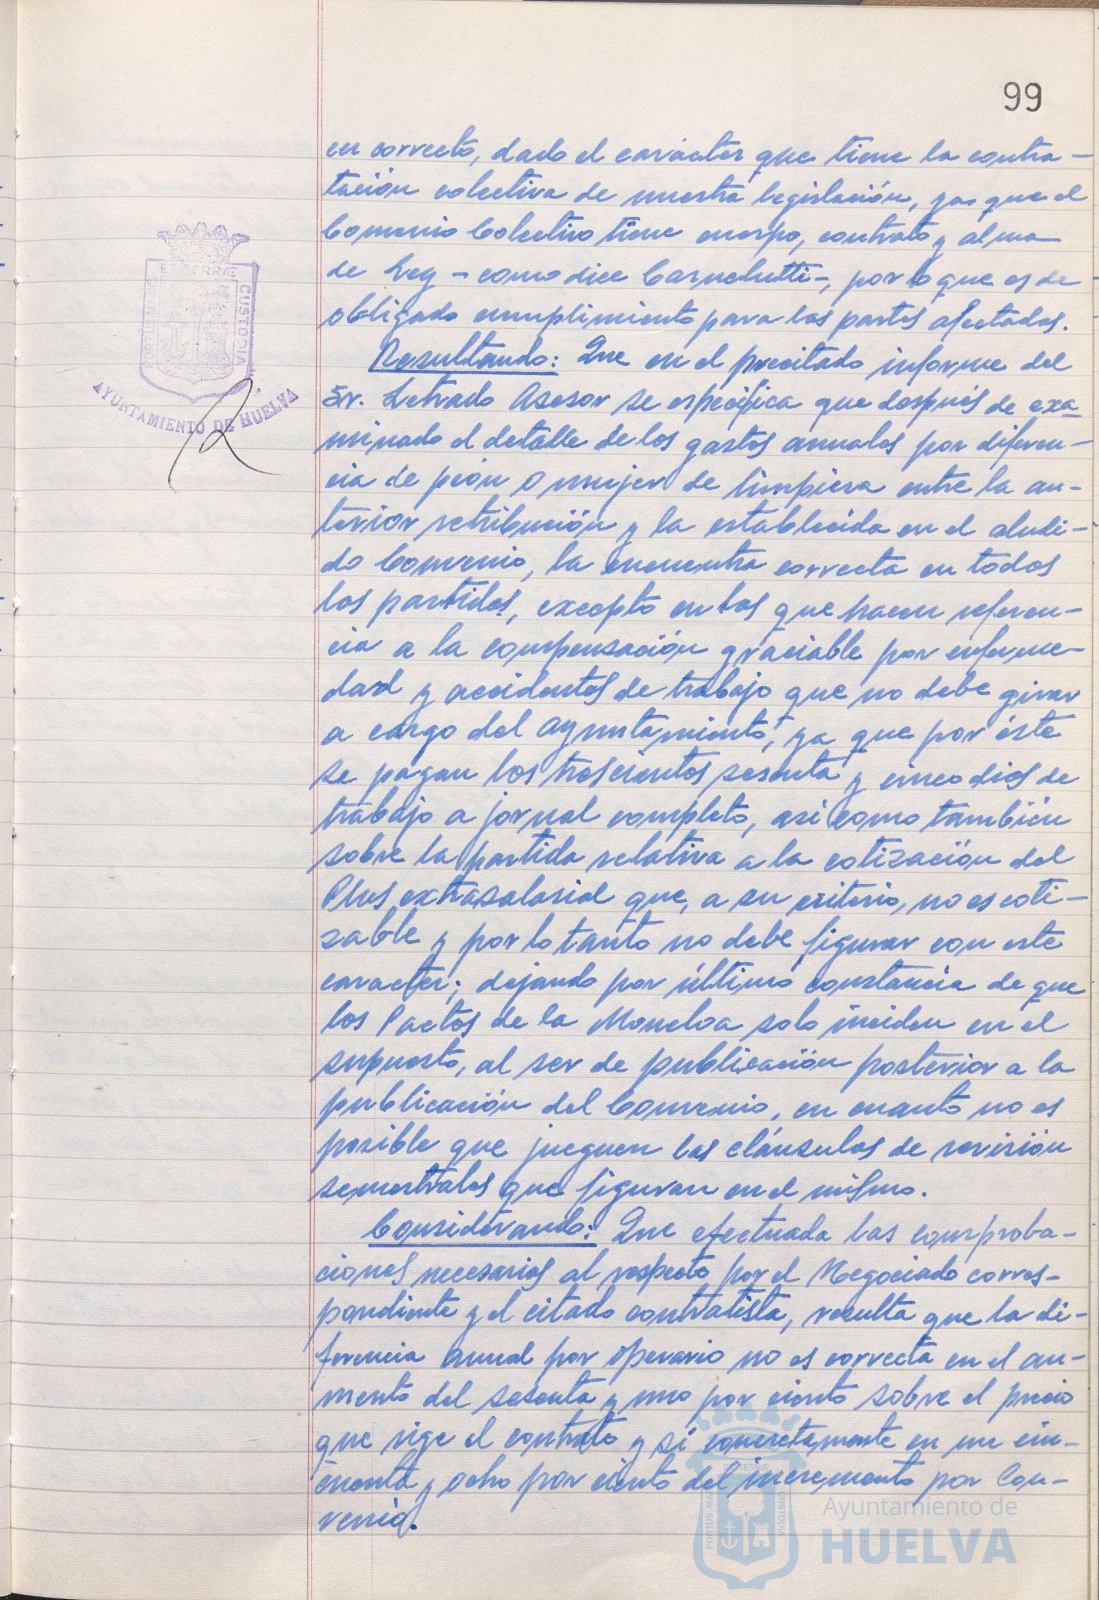 99
en correcto, dado el carácter que tiene la contra-
tación colectiva de nuestra legislación, ya que el
Convenio Colectivo tiene cuerpo, contrato y alma
de Ley - como dice Carnelutti -, por lo que es de
obligado cumplimiento para las partes afectadas.
Resultando: Que en el precitado informe del
Sr. Letrado Asesor se especifica que después de exa
minado el detalle de los gastos anuales por diferen-
cia de peón o mujer de limpieza entre la an-
terior retribución y la establecida en el aludi-
do Convenio, la encuentra correcta en todos
las partidas, excepto en las que hacen referen-
cia a la compensación graciable por enferme-
dad y accidentes de trabajo que no debe girar
a cargo del Ayuntamiento, ya que por éste
se pagan los trescientos sesenta y cinco dias de
trabajo a jornal completo, asi como también
sobre la partida relativa a la cotización del
Plus extrasalarial que, a su criterio, no es coti-
zable y por lo tanto no debe figurar con este
caracter; dejando por último constancia de que
los Pactos de la Moncloa solo inciden en el
supuesto, al ser de publicación posterior a la
publicación del Convenio, en cuanto no es
posible que jueguen las cláusulas de revisión
semestrales que figuran en el mismo.
Considerando: Que efectuada las comproba-
ciones necesarias al respecto por el Negociado corres-
pondiente y el citado contratista, resulta que la di-
ferencia anual por operario no es correcta en el au-
mento del sesenta y uno por ciento sobre el precio
que rige el contrato y sí concretamente en un cin-
cuenta y ocho por ciento del incremento por Con-
venio.
PORTUS MARIS
ET TERRÆ
CUSTODIA
AYUNTAMIENTO DE HUELVA
Ayuntamiento de
HUELVA